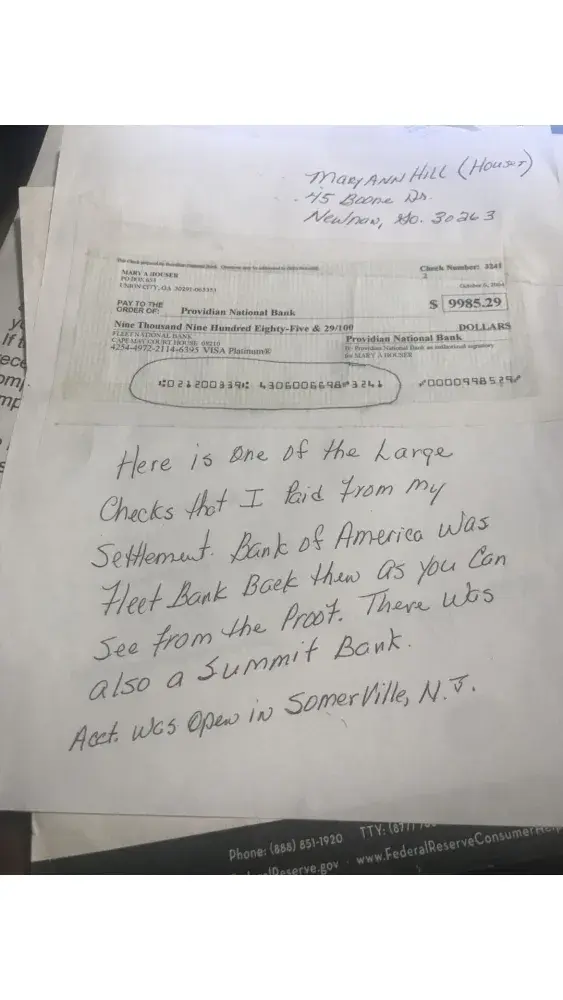 Mary Ann Hill (Houser)
45 Boone Dr.
Newnan, Ga. 30263
Check Number: 3241
MARY A HOUSER
PO BOX 653
UNION CITY, GA 30291-065353
October 6, 2004
PAY TO THE
ORDER OF: Providian National Bank
$ 9985.29
Nine Thousand Nine Hundred Eighty-Five & 29/100 DOLLARS
FLEET NATIONAL BANK
CAPE MAY COURT HOUSE 08210
4254-4972-2114-6395 VISA Platinum®
Providian National Bank
By Providian National Bank an authorized signatory
for MARY A HOUSER
⑆021200339⑆ 4306006698⑈3241 ⑇0000998529⑇
Here is One of the Large
Checks that I Paid from my
Settlement. Bank of America was
Fleet Bank Back then as you Can
See from the Proof. There was
also a Summit Bank.
Acct. was Open in Somerville, N.J.
Phone: (888) 851-1920 TTY: (877)
www.FederalReserveConsumerHelp